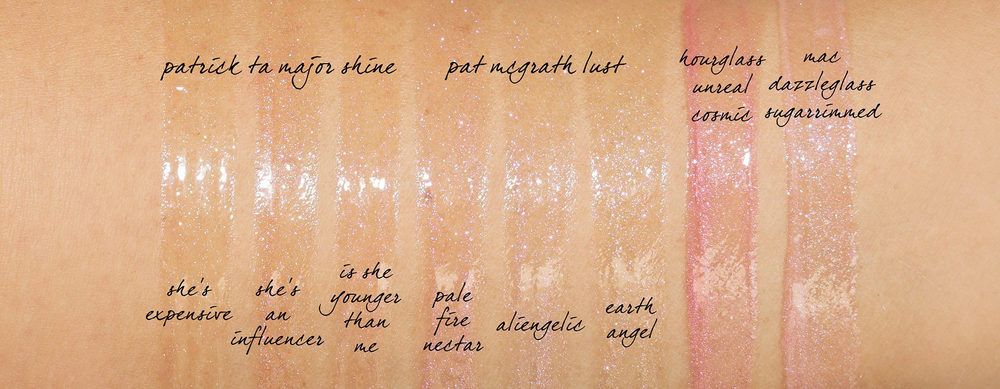 patrick ta major shine
pat mcgrath lust
hourglass
unreal
cosmic
mac
dazzleglass
sugarrimmed
she's
expensive
she's
an
influencer
is she
younger
than
me
pale
fire
nectar
aliengelic
earth
angel